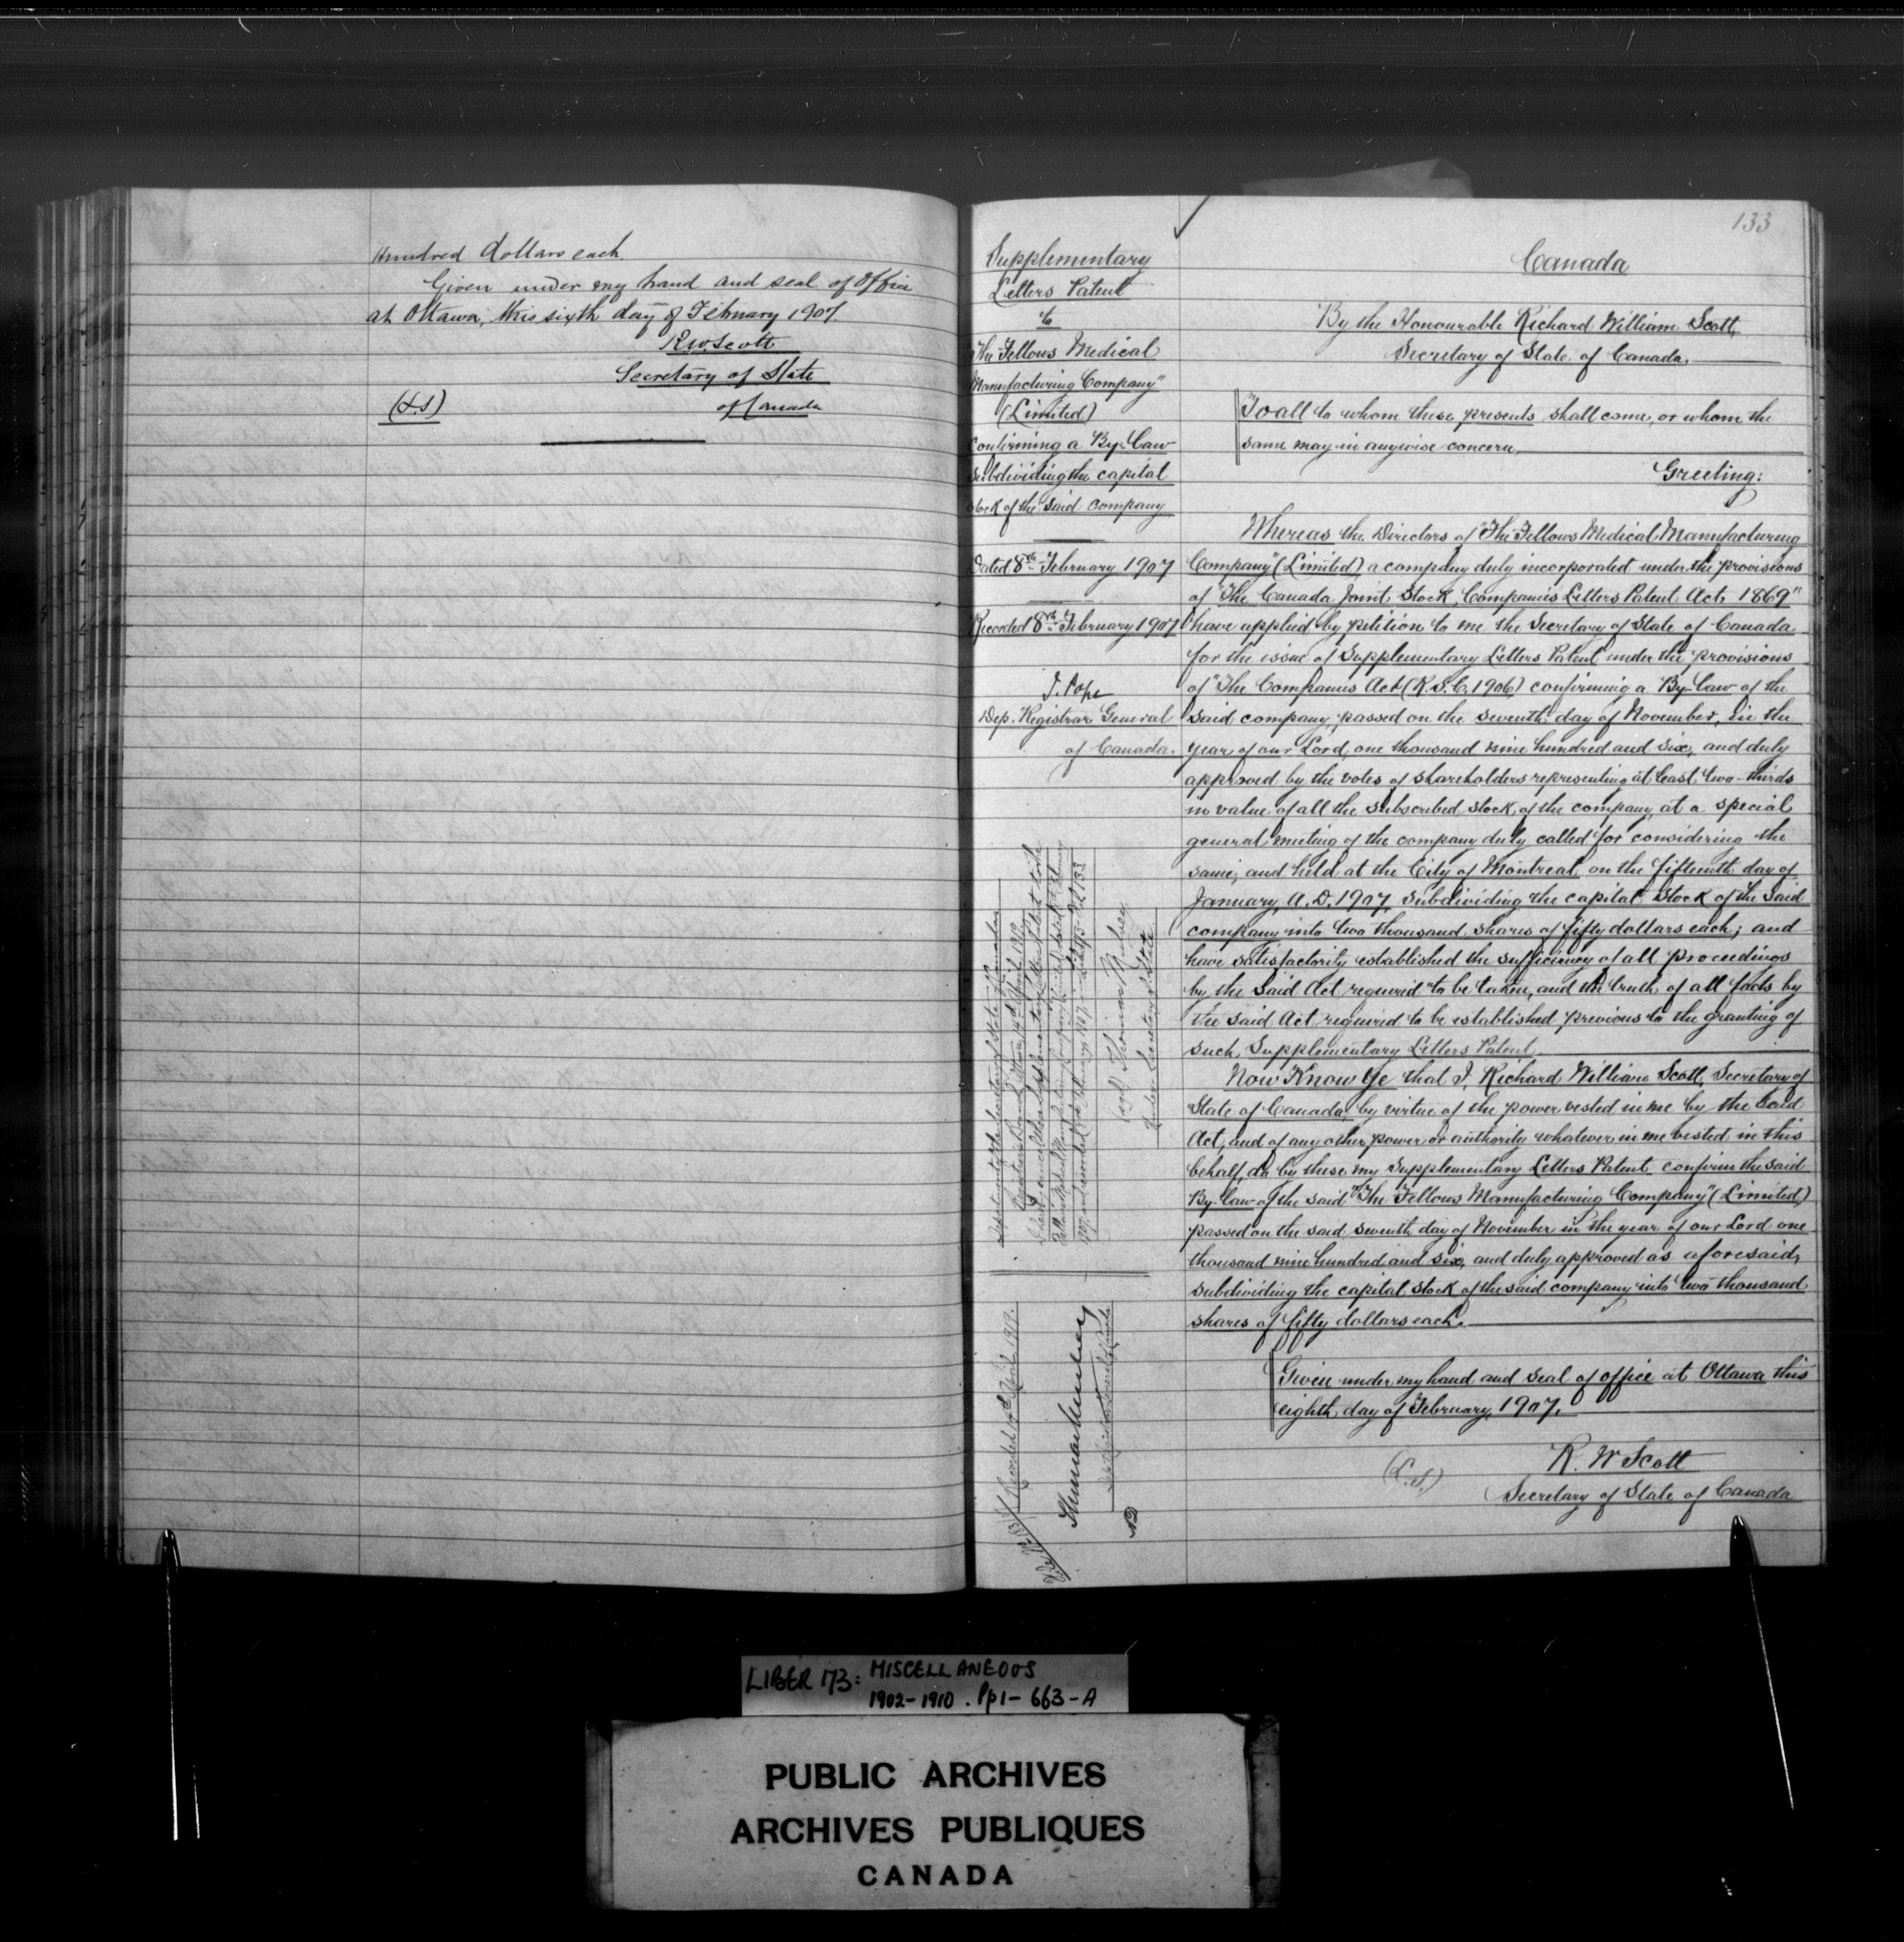 Hundred dollars each.
Given under my hand and seal of Office
at Ottawa, this sixth day of February 1907
R.W. Scott
Secretary of State
of Canada
(L.S)
133
Supplementary
Letters Patent
to
"The Fellows Medical
Manufacturing Company"
(Limited)
confirming a By-Law
subdividing the capital
stock of the said company
Dated 8th February 1907
Recorded 8th February 1907
J. Pope
Dep. Registrar General
of Canada.
Canada
By the Honourable Richard William Scott,
Secretary of State of Canada.
To all to whom these presents shall come, or whom the
same may in anywise concern,
Greeting:
Whereas the Directors of "The Fellows Medical Manufacturing
Company" (Limited) a company duly incorporated under the provisions
of "The Canada Joint Stock Companies Letters Patent Act, 1869"
have applied by petition to me the Secretary of State of Canada
for the issue of Supplementary Letters Patent under the provisions
of "The Companies Act (R.S.C. 1906) confirming a By-Law of the
said company, passed on the seventh day of November, in the
year of our Lord, one thousand nine hundred and six, and duly
approved by the votes of shareholders representing at least two-thirds
in value of all the subscribed stock of the company, at a special
general meeting of the company duly called for considering the
same, and held at the City of Montreal on the fifteenth day of
January, A.D. 1907, subdividing the capital stock of the said
company into two thousand shares of fifty dollars each; and
have satisfactorily established the sufficiency of all proceedings
by the said Act required to be taken, and the truth of all facts by
the said Act required to be established previous to the granting of
such Supplementary Letters Patent.
Now Know Ye that I, Richard William Scott, Secretary of
State of Canada, by virtue of the power vested in me by the said
Act, and of any other power or authority whatever in me vested in this
behalf, do by these my Supplementary Letters Patent confirm the said
By-Law of the said "The Fellows Manufacturing Company" (Limited)
passed on the said seventh day of November in the year of our Lord one
thousand nine hundred and six, and duly approved as aforesaid,
subdividing the capital stock of the said company into two thousand
shares of fifty dollars each.
Given under my hand and seal of office at Ottawa this
eighth day of February, 1907.
(L.S.)
R. W Scott
Secretary of State of Canada
Department of the Secretary of State of Canada
(sgd) Thomas Mulvey
Under Secretary of State
Recorded April 1919.
LIBER 173: MISCELLANEOUS
1902-1910. Pp 1-663-A
PUBLIC ARCHIVES
ARCHIVES PUBLIQUES
CANADA